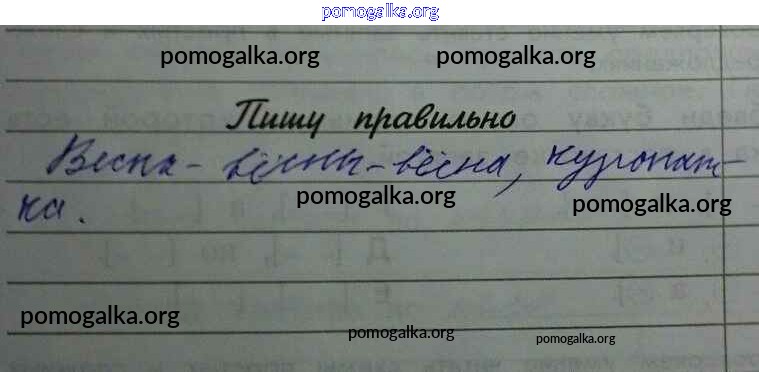 pomogalka.org
pomogalka.org pomogalka.org
Пишу правильно
Весна - вёсны - весна, куропат-
ка.
pomogalka.org pomogalka.org
pomogalka.org
pomogalka.org pomogalka.org